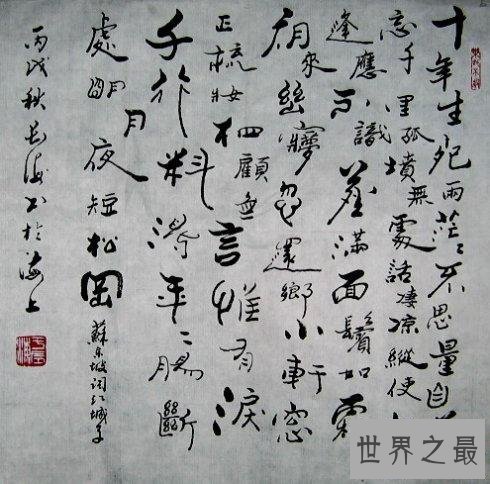 十年生死兩茫茫不思量自
忘千里孤墳無處話淒凉縱使
逢應不識塵滿面鬢如霜
夜來幽夢忽還鄉小軒窓
正梳妝相顧無言惟有淚
千行料得年年腸斷
處明月夜短松岡
蘇東坡詞江城子
丙戌秋長海書於海上
世界之最